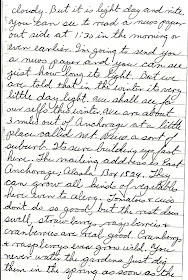 cloudy. But it is light day and nite
you can see to read a news paper
out side at 1:30 in the morning or
even earlier. I'm going to send you
a news paper and you can see
just how long its light. But we
are told that in the winter its very
little day light. We shall see for
our selfs this winter. We are about
3 miles out of Anchorage at a little
place called Mt. View a sort of
suburb. Its sure building up fast
here. The mailing address is East
Anchorage Alaska Box 1524. They
can grow all kinds of vegetables
here turns to along. Tomatos + cuces
don't do so good but the rest does
swell, strawberrys raspberries +
cranberries are real good. Cranberry
+ raspberrys even grow wild. You
never water the gardens just dig
them in the spring as soon as the